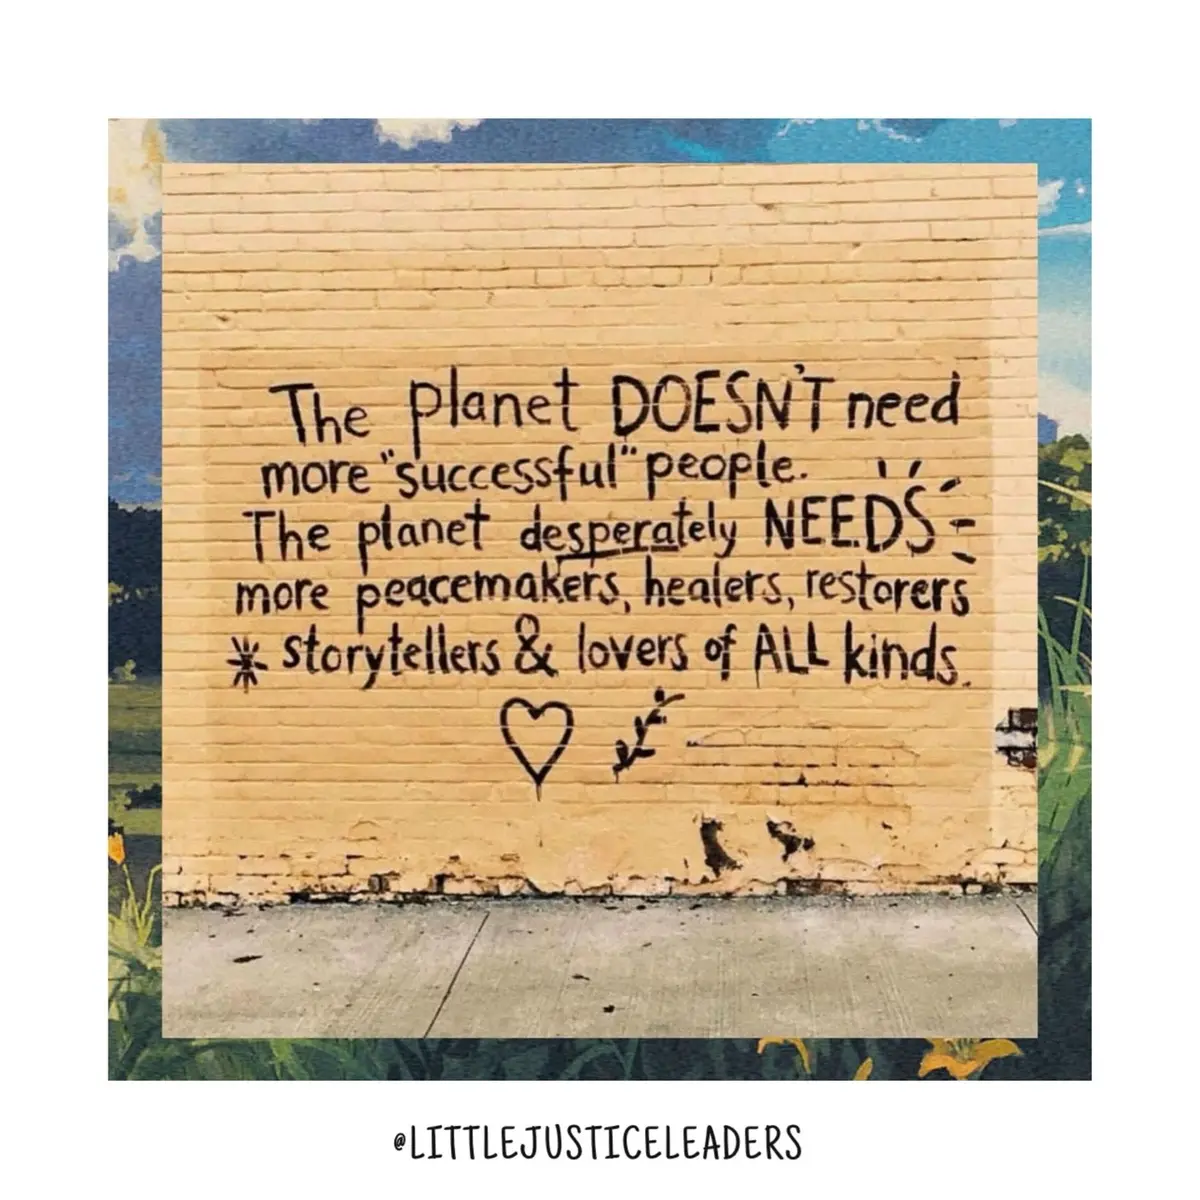 The planet DOESN'T need
more "successful" people.
The planet desperately NEEDS
more peacemakers, healers, restorers
storytellers & lovers of ALL kinds.
@LITTLEJUSTICELEADERS